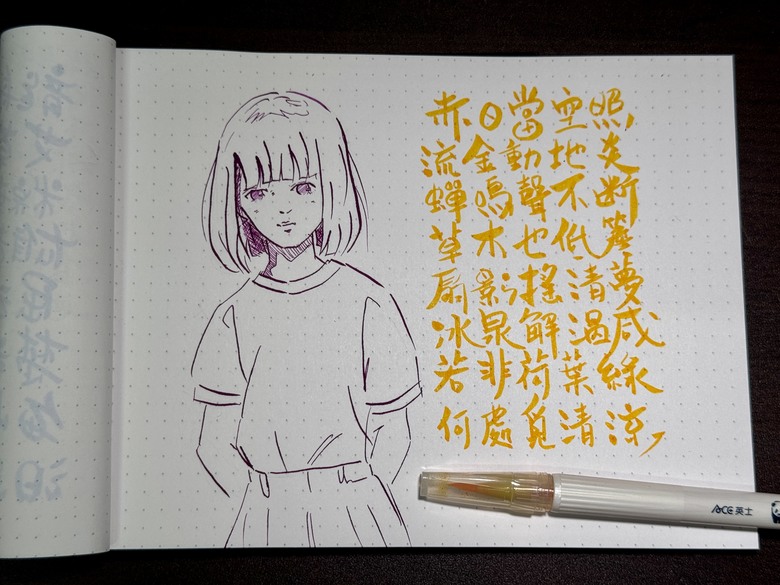 赤日當空照,
流金動地炎
蟬鳴聲不断
草木也低
扇影搖清夢
冰泉解渴咸
若非荷葉綠
何處覓清涼,
ACE 英士